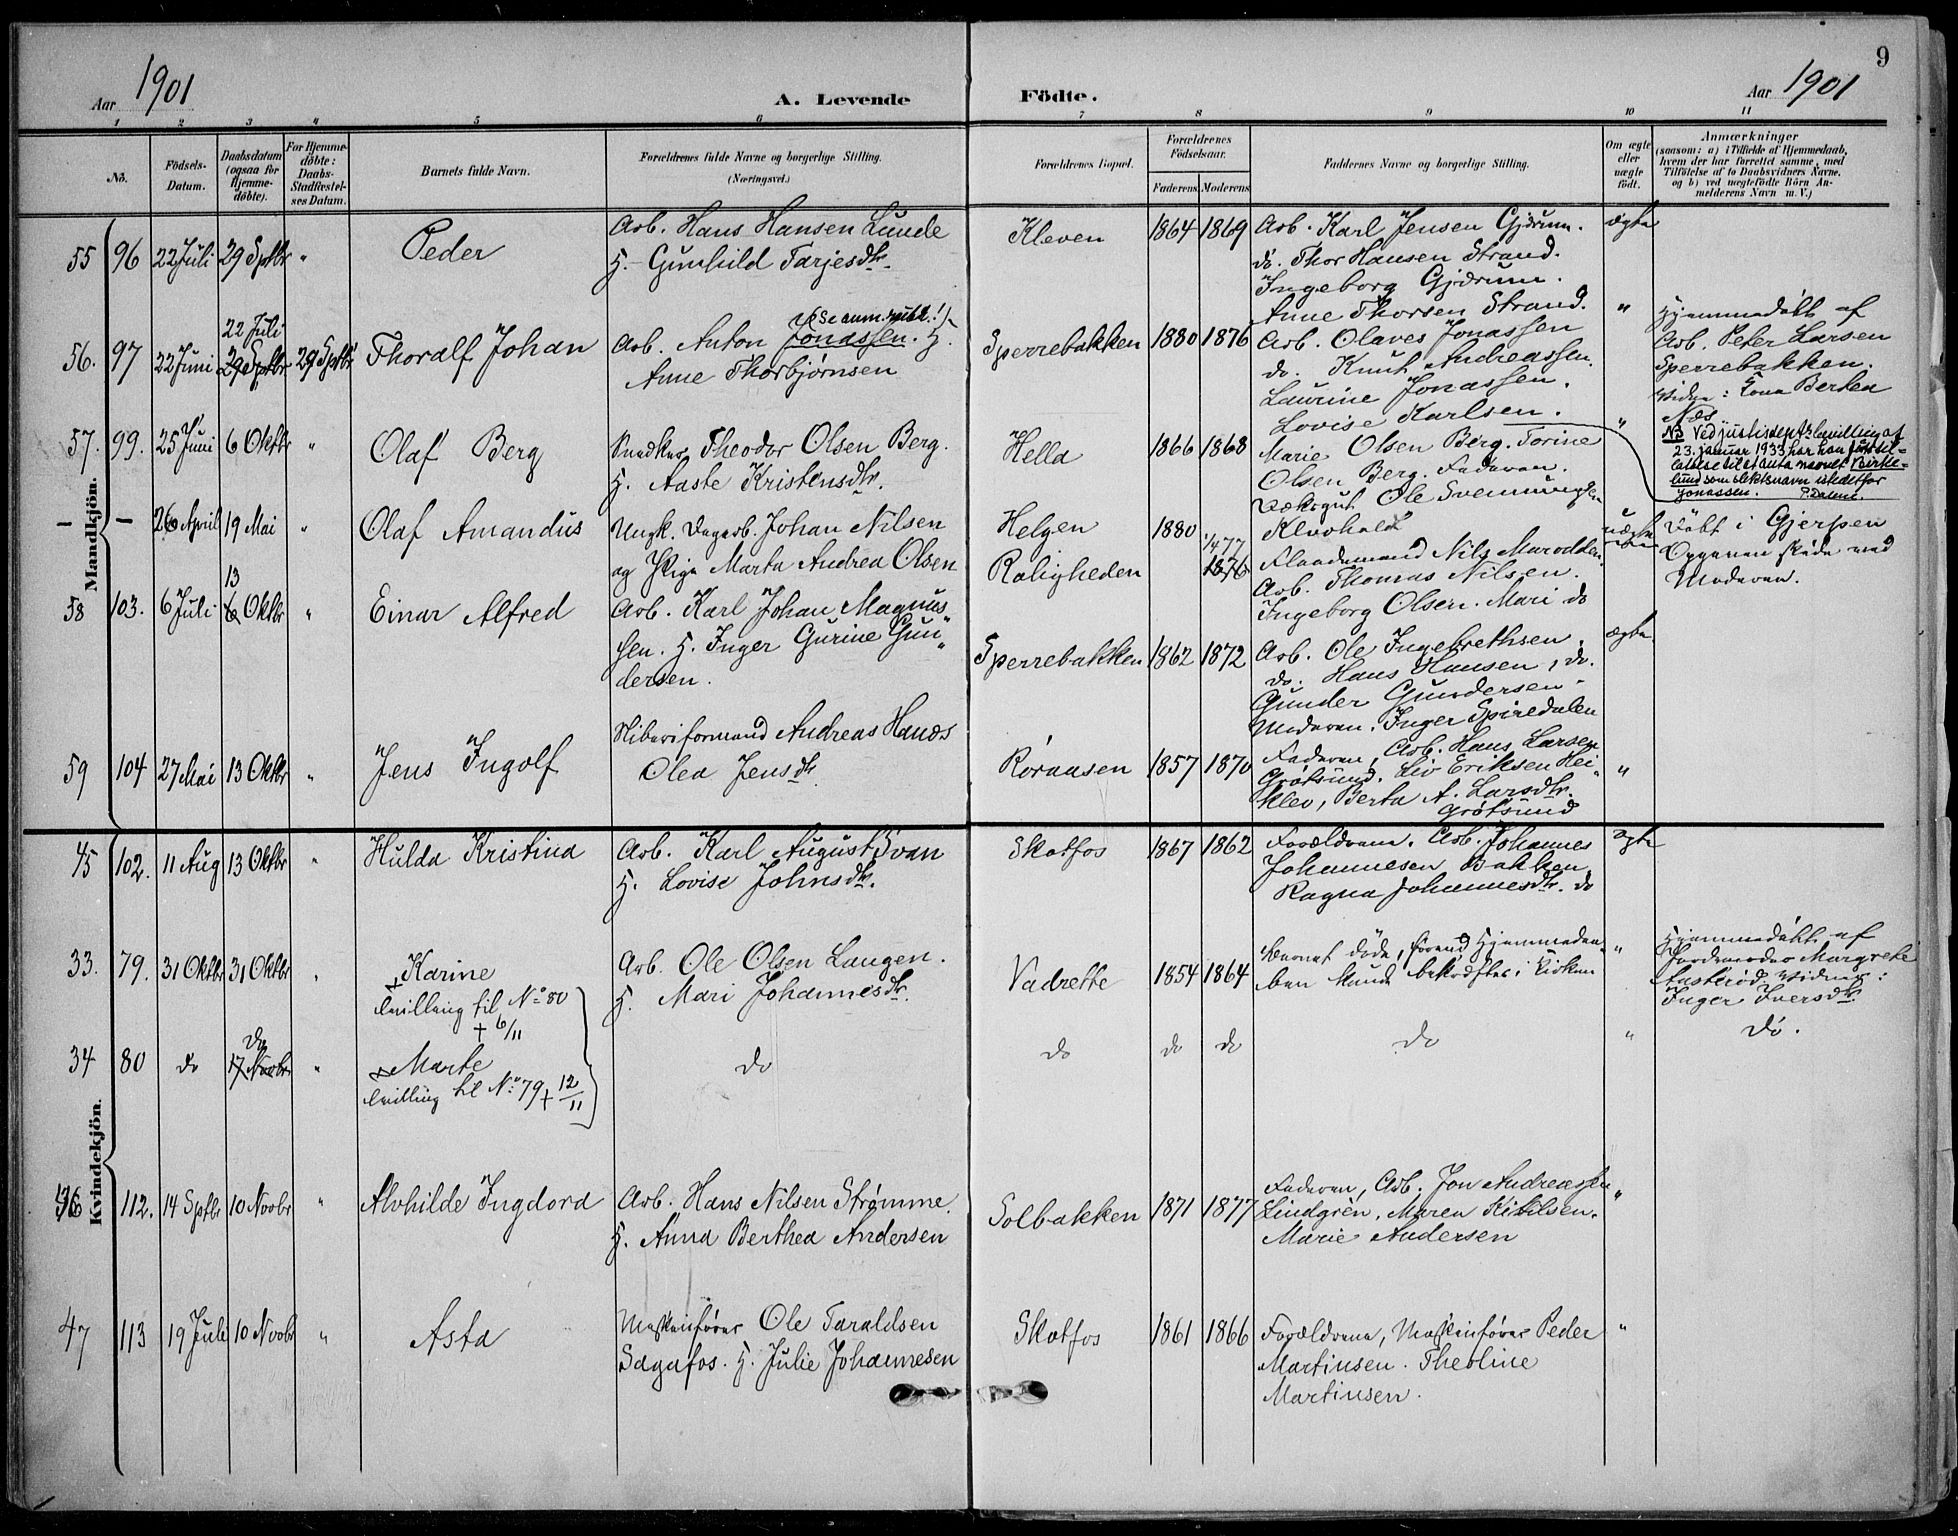 9
Aar 1901
A. Levende Födte.
Aar 1901
1 2 3 4 5 6 7 8 9 10 11
No.
Födsels-
Datum.
Daabsdatum
(ogsaa for
Hjemme-
döbte).
For Hjemme-
döbte:
Daabs-
Stadfæstel-
ses Datum.
Barnets fulde Navn.
Forældrenes fulde Navne og borgerlige Stilling.
(Næringsvei.)
Forældrenes Bopæl.
Forældrenes
Födselsaar.
Faderens Moderens
Faddernes Navne og borgerlige Stilling.
Om ægte
eller
uægte
födt.
Anmærkninger
(saasom: a) i Tilfælde af Hjemmedaab,
hvem der har forrettet samme, med
Tilföielse af to Daabsvidners Navne,
og b) ved uægtefödte Börn An-
melderens Navn m. V.)
Mandkjön.
55 96 22 Juli 29 Sptbr " Peder
Arb. Hans Hansen Lunde
H. Gunhild Tarjesdtr.
Kleven 1864 1869
Arb. Karl Jensen Gjærum.
do. Thor Hansen Strand.
Ingeborg Gjærum.
Anne Thorsen Strand.
ægte
56. 97 22 Juni 22 Juli 29 Sptbr 29 Sptbr Thoralf Johan
Se anm. rubr.!
Arb. Anton Jonassen. H.
Anne Thorbjørnsen
Sperrebakken 1880 1876
Arb. Olaves Jonassen
do. Knut Andreassen.
Laurine Jonassen.
Lovise Karlsen.
"
Hjemmedøbt af
Arb. Peter Larsen
Sperrebakken.
Vidne: Kona Berthea
Næs
NB Ved justisdept's bevilling af
23. januar 1933 har han fått til-
latelse til at anta navnet Birke-
lund som slektsnavn istedetfor
Jonassen.
57. 99. 25 Juni 6 Oktbr " Olaf Berg
Snedker Theodor Olsen Berg.
H. Aaste Kristensdtr.
Hella 1866 1868
Marie Olsen Berg. Torine
Olsen Berg. Faderen.
Væksgut Ole Svenningsen
Klevhald
"
— — 26 April 19 Mai " Olaf Amandus
Ungk. Dagarb. Johan Nilsen
og Pige Marta Andrea Olsen
Helgen
Roligheden
1880 1/4 77 1876
Flaademand Nils Marodden
Arb. Thomas Nilsen.
Ingeborg Olsen. Mari do
uægte
Døbt i Gjerpen
Opgaven skede ved
Moderen.
58 103. 6 Juli 13 Oktbr " Einar Alfred
Arb. Karl Johan Magnus-
sen. H. Inger Gurine Gun-
dersen.
Sperrebakken 1862 1872
Arb. Ole Ingebrethsen.
do. Hans Hansen, do.
Gunder Gundersen.
Moderen. Inger Spiredalen
ægte
59 104 27 Mai 13 Oktbr " Jens Ingolf
Sliberiformand Andreas Hanss
Olea Jensdtr.
Røraasen 1857 1870
Faderen, Arb. Hans Larsen
Grøtsund. Liv Eriksen Hei-
klev, Berta A. Larsdtr.
Grøtsund
"
Kvindekjön.
45 102. 11 Aug 13 Oktbr " Hulda Kristina
Arb. Karl August Svan
H. Lovise Johnsdtr.
Skotfos 1867 1862
Forældrene. Arb. Johannes
Johannesen Bakken
Ragna Johannesdtr. do
ægte
33. 79. 31 Oktbr 31 Oktbr " Karine
tvilling til No 80
+ 6/11
Arb. Ole Olsen Laugen.
H. Mari Johannesdtr.
Vadrette 1854 1864
Barnet døde, førend Hjemmedaa-
ben kunde bekræftes i Kirken
"
Hjemmedøbt af
Jordmoder Margrete
Aasterød. Vidner:
Inger Iversdtr.
34 80 do do 17 Novbr " Marte
tvilling til No 79 + 12/11
do
do do do do " Do.
46 112. 14 Sptbr 10 Novbr " Alvhilde Ingdora
Arb. Hans Nilsen Strømme.
H. Anna Berthea Andersen
Solbakken 1871 1877
Faderen, Arb. Jon Andreassen
Lindgren. Maren Kittilsen.
Marie Andersen
"
47 113 19 Juli 10 Novbr " Asta
Maskinfører Ole Taraldsen
Sagafos. H. Julie Johannesen
Skotfos 1861 1866
Forældrene, Maskinfører Peder
Martinsen. Theoline
Martinsen.
"